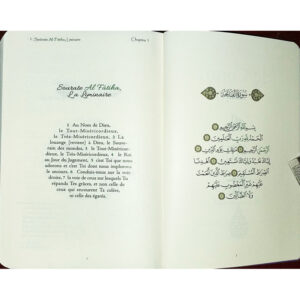 1. Sourate Al Fatiha, Liminaire
Chapitre 1
Sourate Al Fatiha,
La Liminaire
1 Au Nom de Dieu,
le Tout-Miséricordieux,
le Très-Miséricordieux. 2 La
louange [revient] à Dieu, le Seigneur
des mondes, 3 le Tout-Miséricor-
dieux, le Très-Miséricordieux, 4 le Roi
au Jour du Jugement. 5 c'est Toi que nous
adorons et c'est Toi dont nous implorons
le secours. 6 Conduis-nous sur la voie
de droiture, 7 la voie de ceux sur lesquels Tu
répands Tes grâces, et non celle de ceux
qui encourent Ta colère,
ni celle des égarés.
سورة الفاتحة
بسم الله الرحمن الرحيم
الحمد لله رب العالمين
الرحمن الرحيم مالك يوم الدين
إياك نعبد وإياك نستعين اهدنا
الصراط المستقيم صراط الذين أنعمت
عليهم غير المغضوب عليهم
ولا الضالين